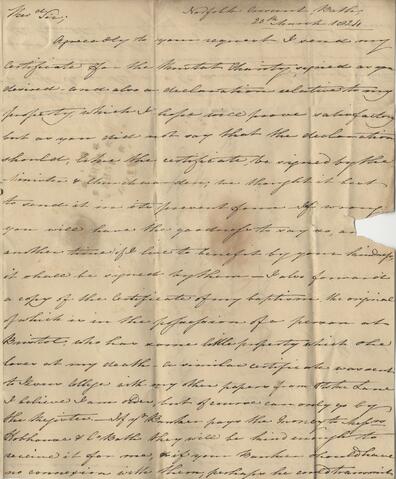 Rev.d Sir, Norfolk Crescent Bath
20th March 1824
Agreeably to your request I send my
Certificate for the Bristol Charity signed as you
desired and also a declaration relative to my
property, which I hope will prove satisfactory
but as you did not say that the declaration
should, like the certificate, be signed by the
Minister & Churchwarden, we thought it best
to send it in its present form - If wrong
you will have the goodness to say so, as
another time if I live to benefit by your kindness
it shall be signed by them - I also forward
a copy of the Certificate of my baptism, the original
of which is in the possession of a person at
Bristol, who has some little property which she
loses at my death a similar certificate was sent
to College with my other papers from
I believe I am older, but of course can only go by
the Register - If yr Banker pays the money to Messrs
Hobhouse & Co Bath they will be kind enough to
receive it for me, & if your Banker should have
no connexion with them, perhaps he could transmit